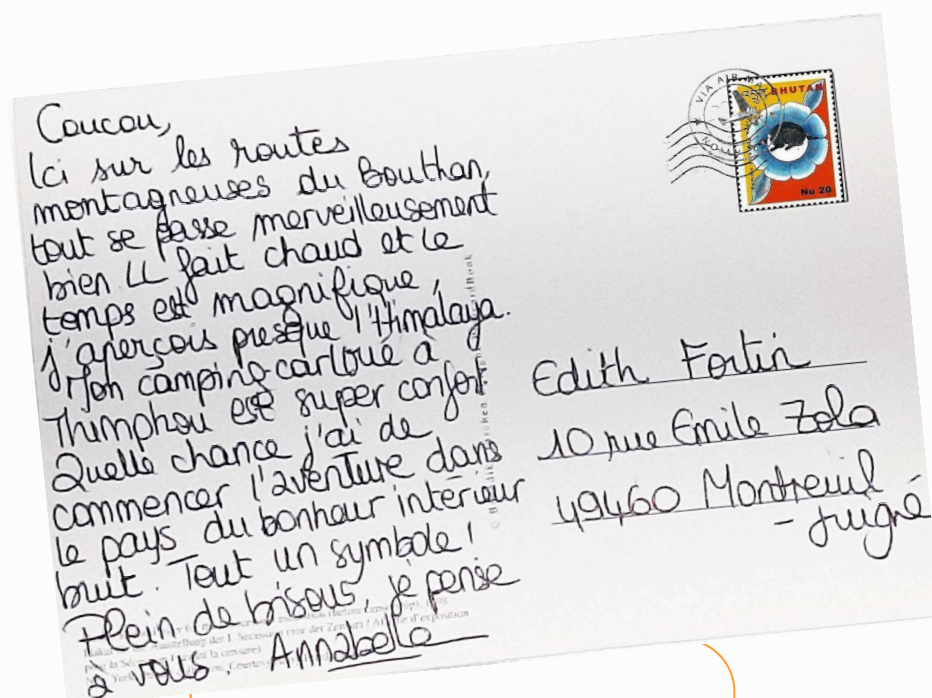 Coucou,
Ici sur les routes
montagneuses du Bouthan,
tout se passe merveilleusement
bien IL fait chaud et le
temps est magnifique,
j'aperçois presque l'Himalaya.
Mon camping-car loué à
Thimphou est super confort.
Quelle chance j'ai de
commencer l'aventure dans
le pays du bonheur intérieur
bruit. Tout un symbole !
Plein de bisous, je pense
à vous. Annabelle
VIA AIR
BHUTAN
Nu 20
Edith Fortin
10 rue Emile Zola
49460 Montreuil
- Juigné